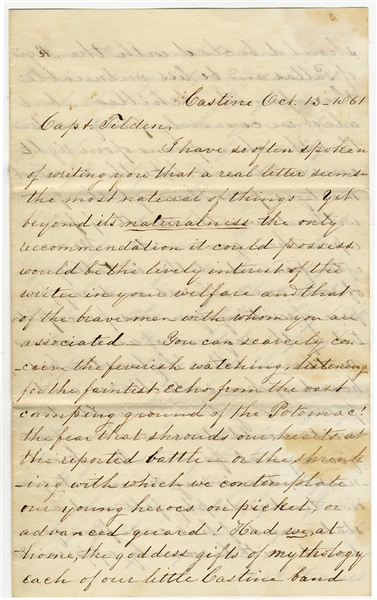 Castine Oct. 13 - 1861
Capt. Tilden,
I have so often spoken
of writing you that a real letter seems
the most natural of things. Yet
beyond its naturalness the only
recommendation it could possess
would be the lively interest of the
writer in your welfare and that
of the brave men with whom you are
associated. You can scarcely con-
ceive the feverish watching, listening
for the faintest echo from the vast
camping ground of the Potomac!
the fear that shrouds our hearts at
the reported battle - or the shrink
-ing with which we contemplate
our young heroes on picket, or
advanced guard! Had we, at
home, the goddess gifts of mythology
each of our little Castine band